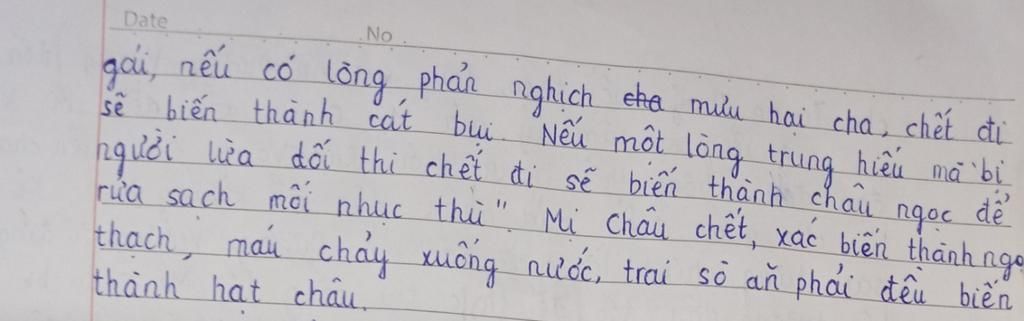 Date No
gái, nếu có lòng phản nghịch cha mưu hại cha, chết đi
sẽ biến thành cát bụi. Nếu một lòng trung hiếu mà bị
người lừa dối thì chết đi sẽ biến thành châu ngọc để
rửa sạch mối nhục thù". Mị Châu chết, xác biến thành ngọ
thạch, máu chảy xuống nước, trai sò ăn phải đều biến
thành hạt châu.